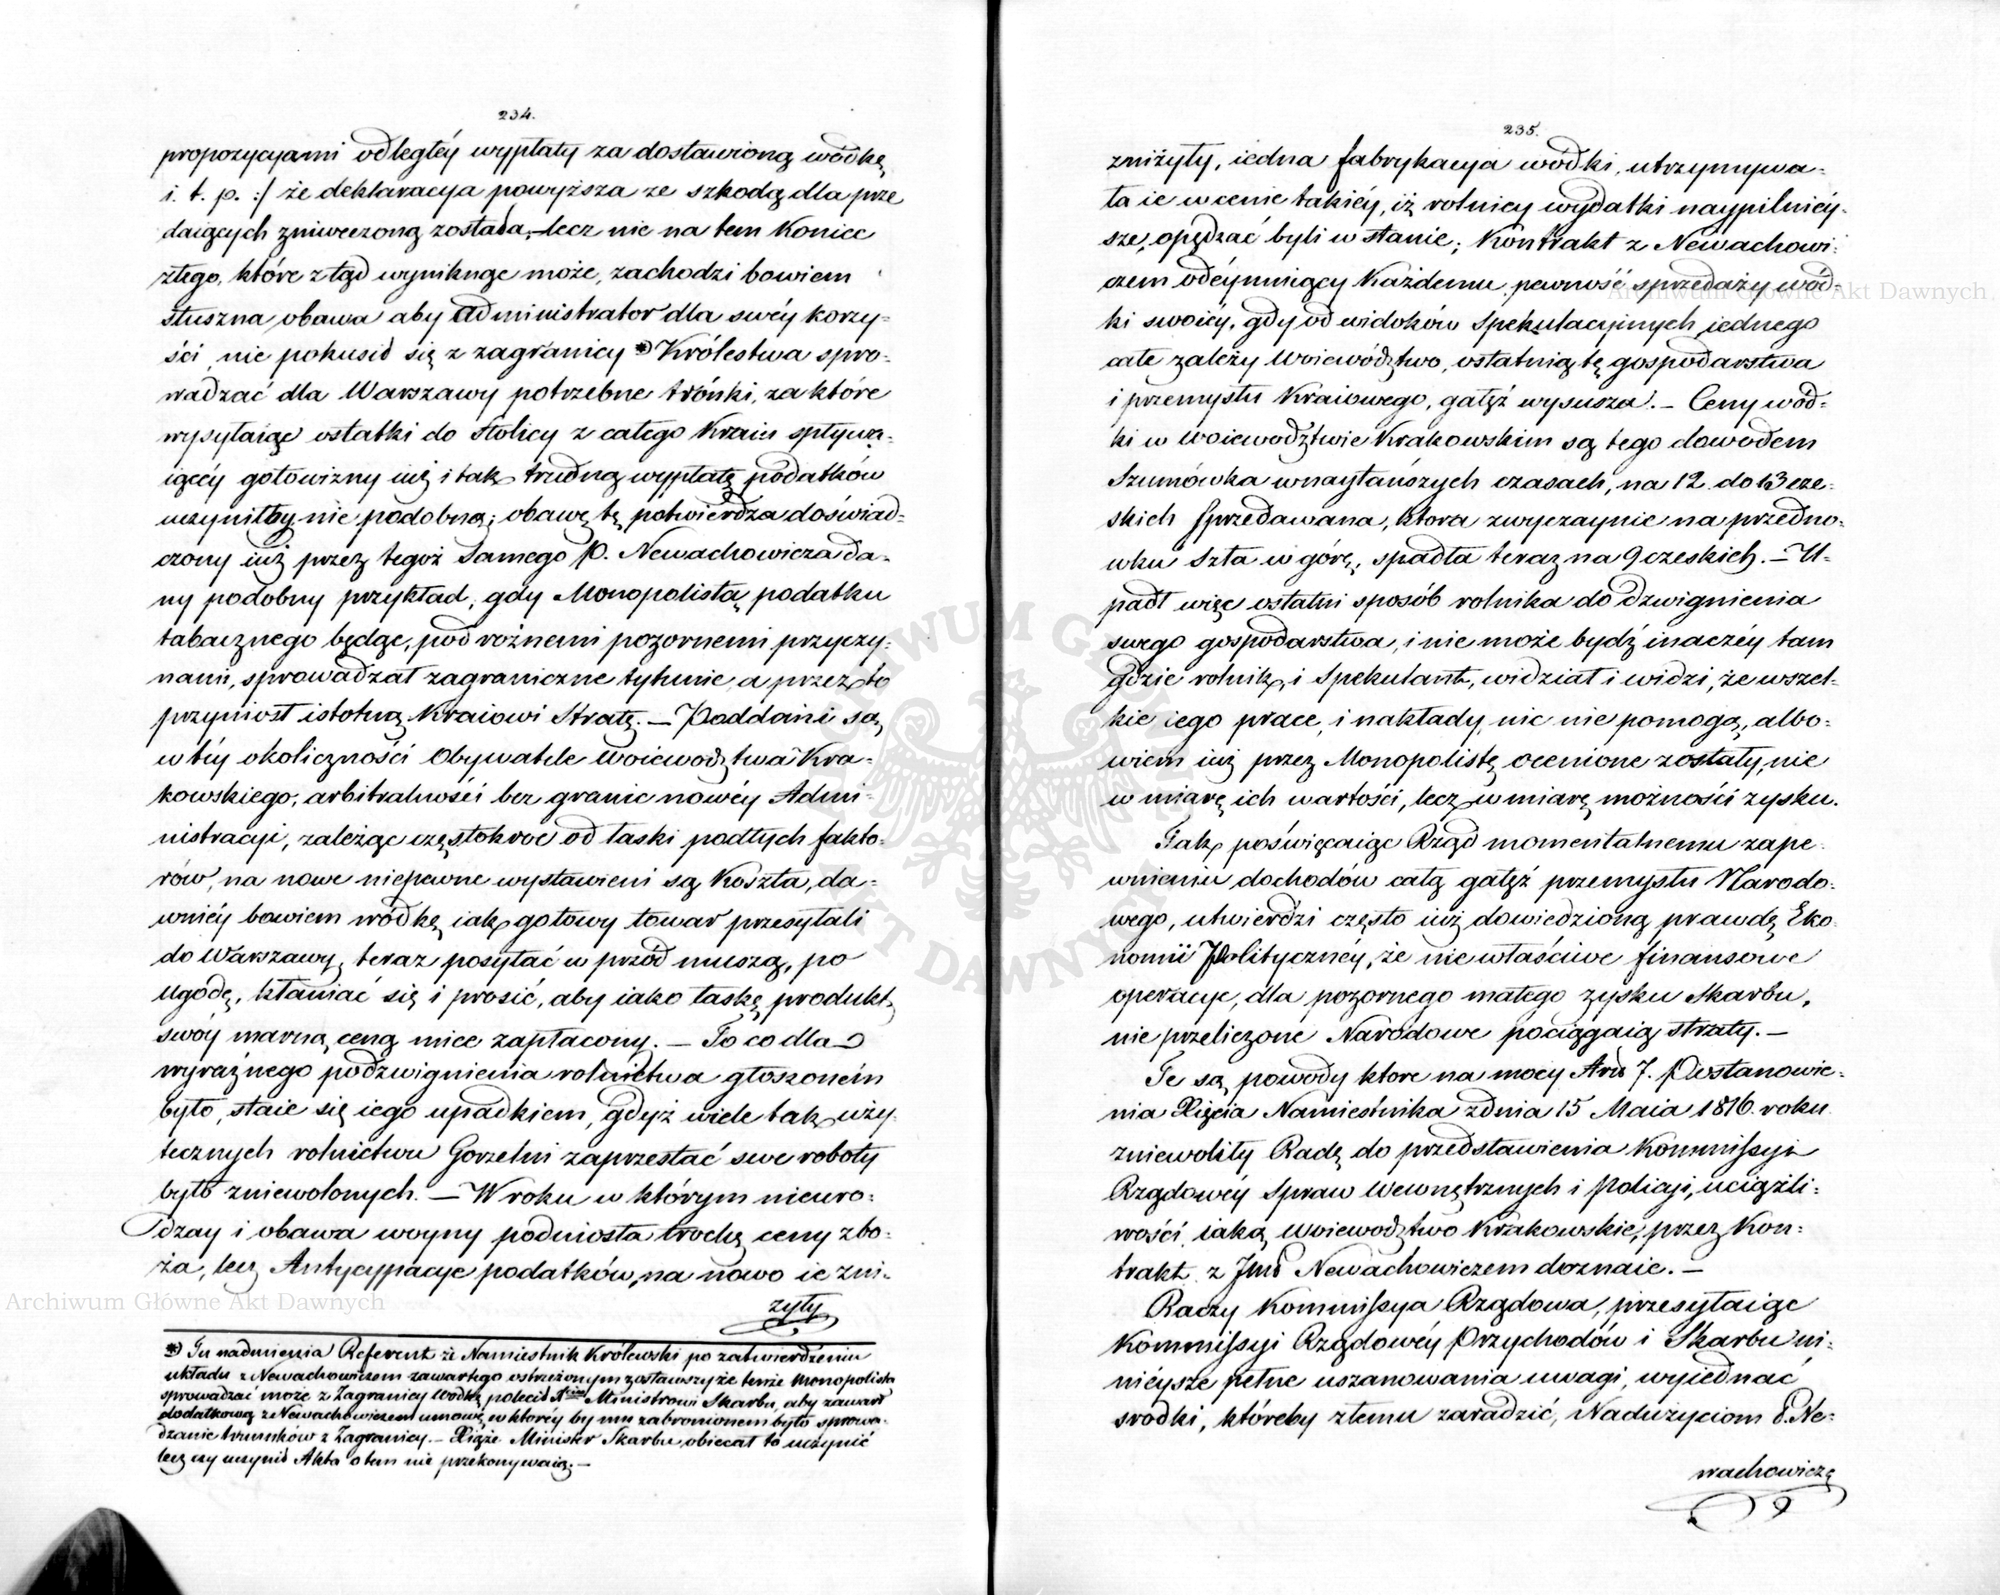 234.
propozycyami odległéy wypłaty za dostawioną wódkę,
i. t. p. :/ że deklaracya powyższa ze szkodą dla prze
daiących zniweczoną została, lecz nie na tem Koniec
złego, które ztąd wyniknąć może, zachodzi bowiem
słuszna obawa aby Administrator dla swéy korzy-
ści, nie pokusił się z zagranicy *) Królestwa spro-
wadzać dla Warszawy potrzebne trónki, za które
wysyłaiąc ostatki do Stolicy z całego Kraiu spływa-
iącéy gotowizny iuż i tak trudną wypłatę podatków
uczyniłby nie podobną; obawę tę potwierdza doświad-
czony iuż przez tegoż Samego P. Newachowicza da-
ny podobny przykład, gdy Monopolistą podatku
tabacznego będąc, pod rożnemi pozornemi przyczy-
nami, sprowadzał zagraniczne tytunie a przez to
przyniosł istotną Kraiowi Stratę. — Poddani są
w téy okoliczności Obywatele Woiewodztwa Kra-
kowskiego, arbitralności bez granic nowéy Admi-
nistracyi, zależąc częstokroc od łaski podłych fakto-
rów, na nowe niepewne wystawieni są Koszta, da-
wniéy bowiem wódkę iak gotowy towar przesyłali
do Warszawy, teraz posyłać w przód muszą, po
Ugodę, kłaniać się i prosić, aby iako łaskę produkt
swóy marną ceną mice zapłacony. — To co dla
wyraźnego podzwignienia rolnictwa głoszoném
było, staie się iego upadkiem, gdyż wiele tak uży-
tecznych rolnictwu Gorzelni zaprzestać swe roboty
było zniewolonych. — W roku w którym nieuro-
dzay i obawa woyny podniosła trochę ceny zbo-
ża, lecz Antycypacye podatków, na nowo ie zni-
żyły
*) Tu nadmienia Referent że Namiestnik Królewski po zatwierdzeniu
układu z Newachowiczem zawartego ostrzeżonym zostawszy że tenże Monopolista
sprowadzać może z Zagranicy Wódkę, polecił Ministrowi Skarbu, aby zawarł
dodatkową z Newachowiczem umowę, w któréy by mu zabronionem było sprowa-
dzanie trunków z Zagranicy. — Xiąże Minister Skarbu obiecał to uczynić
lecz czy uczynił Akta o tem nie przekonywaią. —
235.
zniżyły, iedna fabrykacya wódki, utrzymywa-
ła ie w cenie takiéy, iż rolnicy wydatki naypilniéy-
sze, opędzać byli w stanie; Kontrakt z Newachowi-
czem odéymuiący Każdemu pewność sprzedaży wód-
ki swoiey, gdy od widoków Spekulacyinych iednego
całe zależy Woiewództwo, ostatnią tę gospodarstwa
i przemysłu Kraiowego, gałęź wysusza. — Ceny wód-
ki w Woiewodztwie Krakowskim są tego dowodem
Szumówka w naytańszych czasach, na 12 do 13 cze-
skich Sprzedawana, ktora zwyczaynie na przedno-
wku szła w górę, spadła teraz na 9 czeskich. — U-
padł więc ostatni sposób rolnika do dzwignienia
swego gospodarstwa, i nie może bydź inaczéy tam
gdzie rolnik, i Spekulant, widział i widzi, że wszel-
kie iego prace, i nakłady, nic nie pomogą, albo-
wiem iuż przez Monopolistę ocenione zostały, nie
w miarę ich wartości, lecz w miarę możności zysku.
Tak poświęcaiąc Rząd momentalnemu zape-
wnieniu dochodów całą gałęź przemysłu Narodo-
wego, utwierdzi często iuż dowiedzioną prawdę Eko-
nomii Politycznéy, że nie właściwe finansowe
operacye, dla pozornego małego zysku Skarbu,
nie przeliczone Narodowe pociągaią straty. —
Te są powody ktore na mocy Artt 7. Postanowie-
nia Xięcia Namiestnika z dnia 15 Maia 1816. roku
zniewoliły Radę do przedstawienia Kommissyi
Rządowéy Spraw Wewnętrznych i Policyi, uciążli-
wości iaką Woiewodztwo Krakowskie, przez Kon-
trakt z Jmć Newachowiczem doznaie. —
Raczy Kommissya Rządowa, przesyłaiąc
Kommissyi Rządowéy Przychodów i Skarbu ni-
niéysze pełne uszanowania uwagi, wyiednać
srodki, któreby złemu zaradzić, Nadużyciom P. Ne-
wachowicza
Archiwum Główne Akt Dawnych
Archiwum Główne Akt Dawnych
ARCHIWUM GŁÓWNE AKT DAWNYCH